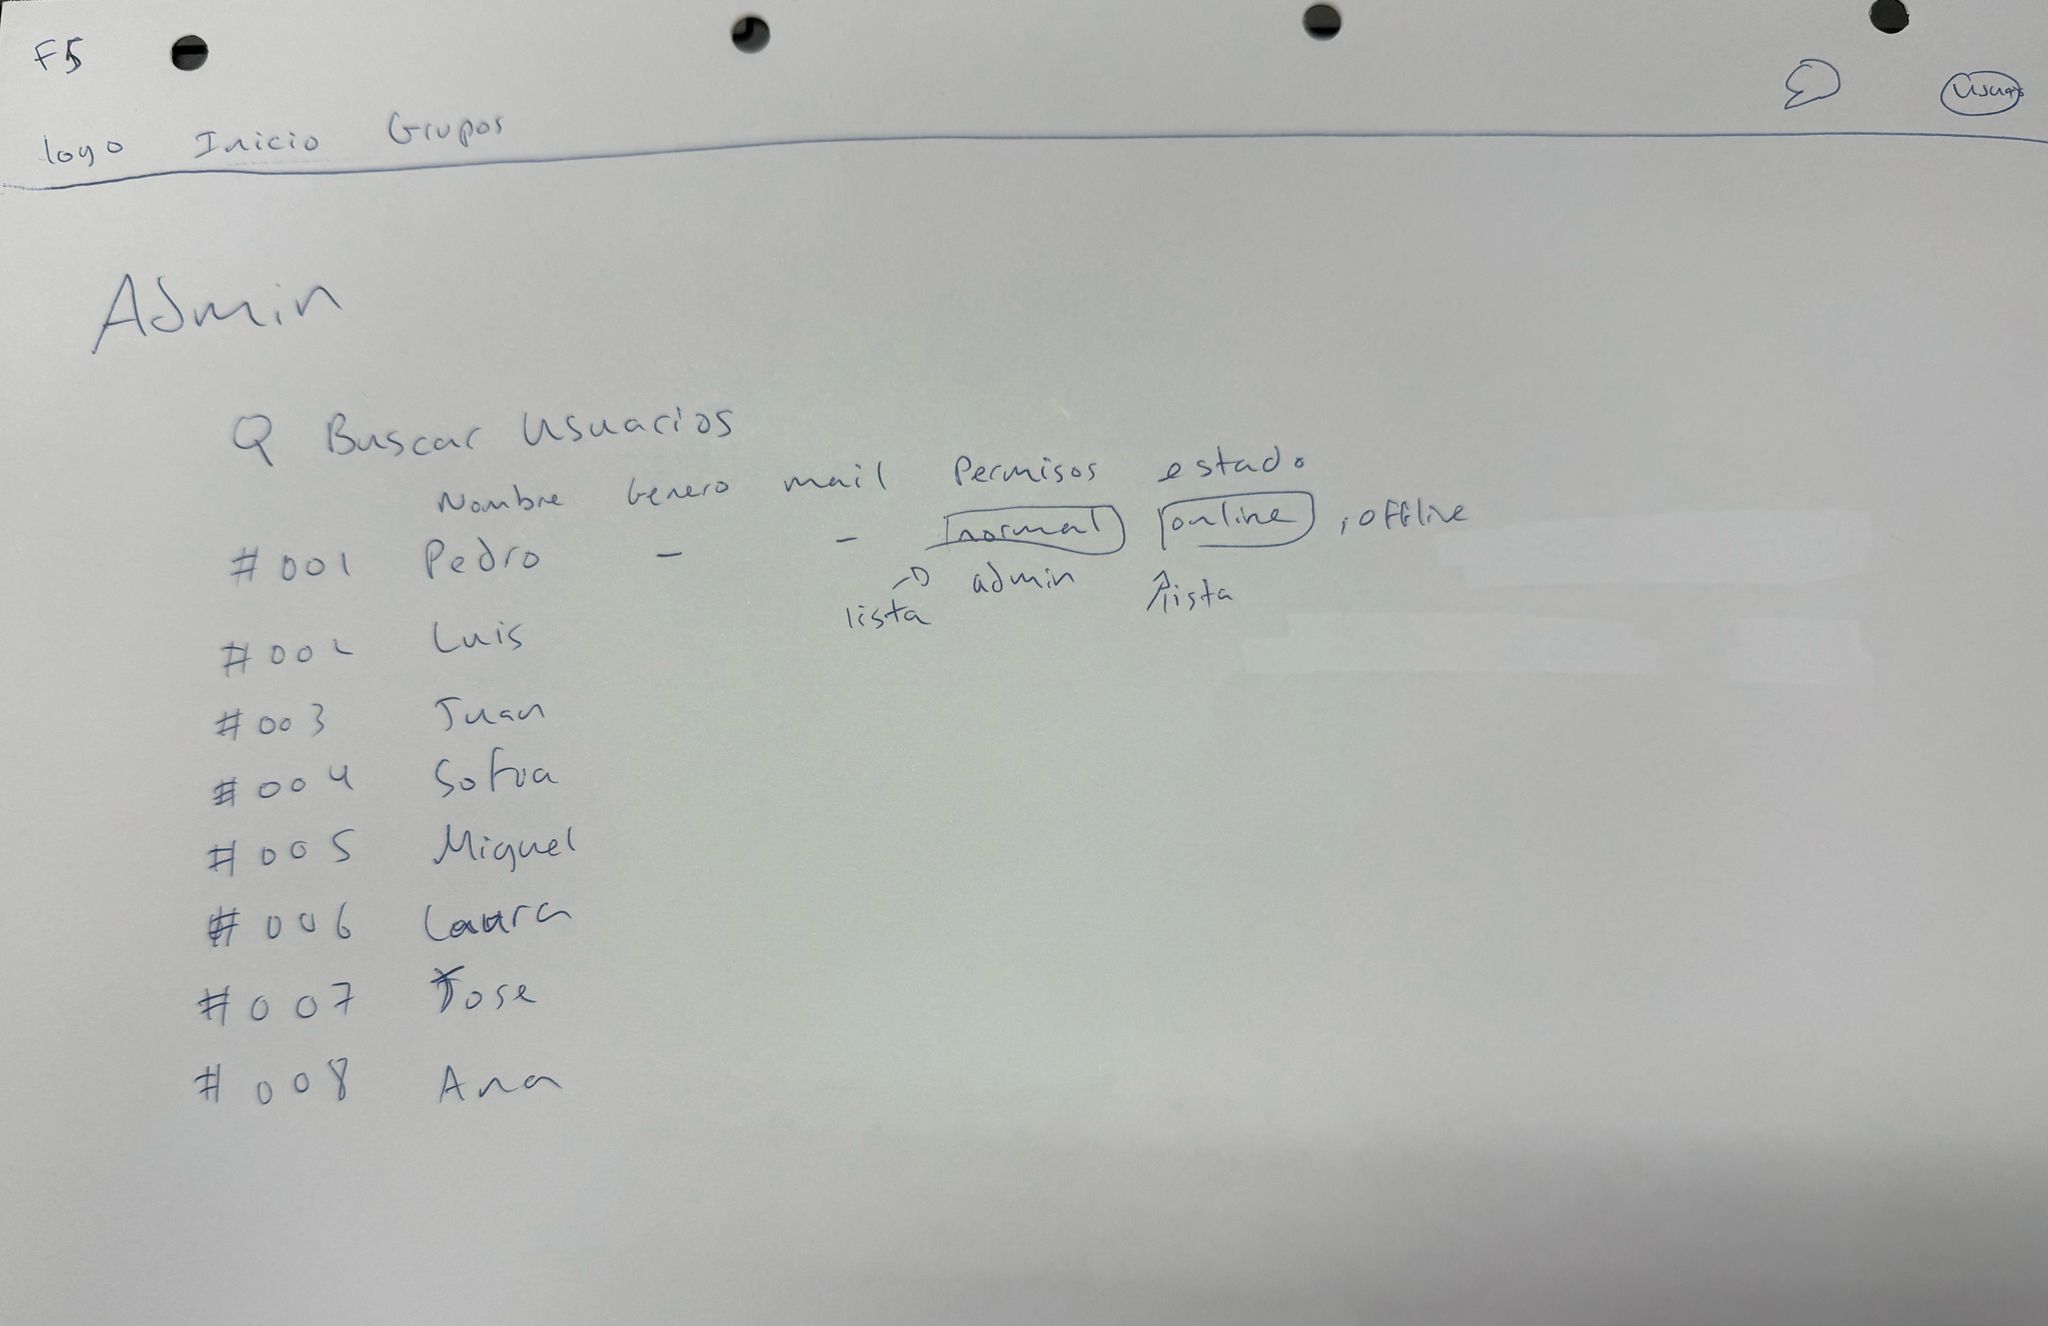 F5
logo Inicio Grupos Usuario
Admin
Buscar Usuarios
Nombre Genero mail Permisos estado
#001 Pedro - - normal online , offline
lista admin lista
#002 Luis
#003 Juan
#004 Sofia
#005 Miguel
#006 Laura
#007 Jose
#008 Ana